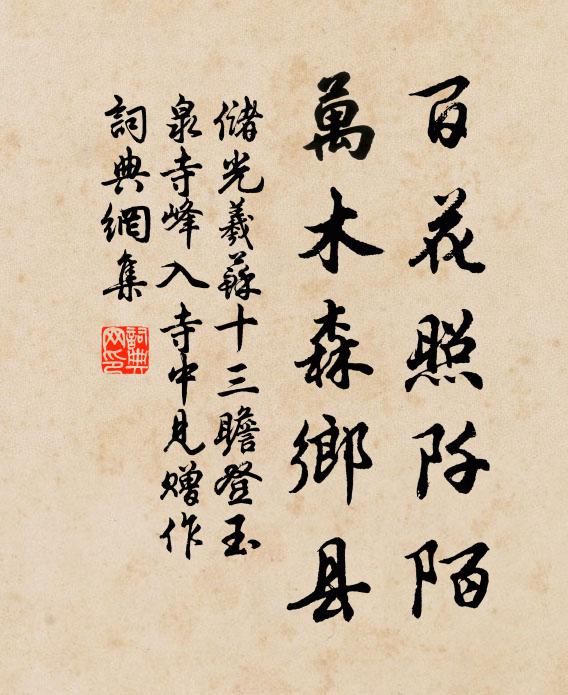 百花照阡陌
萬木森鄉县
儲光羲蘇十三瞻登玉
泉寺峰入寺中見贈作
詞典網集
詞典网印